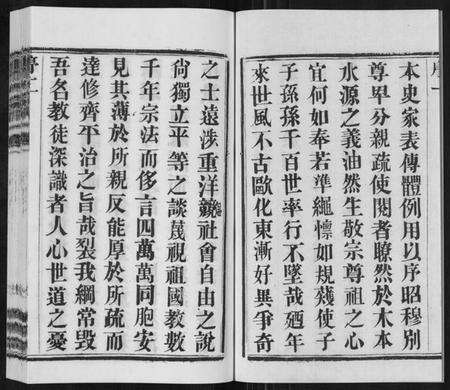 序一
本史家表傳體例用以序昭穆別
尊卑分親疏使閱者瞭然於木本
水源之義油然生敬宗尊祖之心
宜何如奉若準繩懍如規箴使子
子孫孫千百世率行不墜哉廼年
來世風不古歐化東漸好異爭奇
之士遠涉重洋競社會自由之說
尙獨立平等之談蔑視祖國敎數
千年宗法而侈言四萬萬同胞安
見其薄於所親反能厚於所疏而
達修齊平治之旨哉裂我綱常毀
吾名教徒深識者人心世道之憂
序二